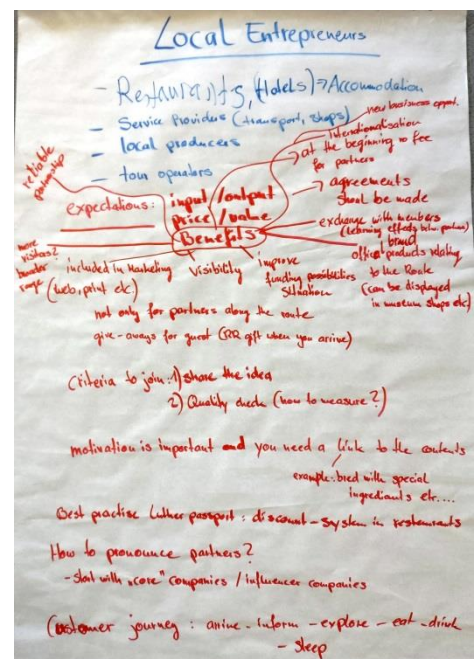 Local Entrepreneurs
- Restaurants, (Hotels) → Accomodation
- Service Providers (transport, shops)
- local producers
- tour operators
new business opport.
internationalisation
at the beginning no fee
for partners
reliable
partnership
expectations: input/output
price/value
Benefits
→ agreements
shoul be made
exchange with members
(learning effects betw. partners)
brand
more
visitors?
broader
range
included in Marketing
(web, print etc)
Visibility
improve
funding possibilities
situation
offer products relating
to the Route
(can be displayed
in museum shops etc)
not only for partners along the route
give-aways for guest (RR gift when you arrive)
Criteria to join: 1) share the idea
2) Quality check (how to measure?)
motivation is important and you need a link to the contents
example: bred with special
ingrediants etc....
Best practise Luther passport: discount-system in restaurants
How to pronounce partners?
- Start with "core" companies / influencer companies
Customer journey: arrive - inform - explore - eat - drink
- sleep